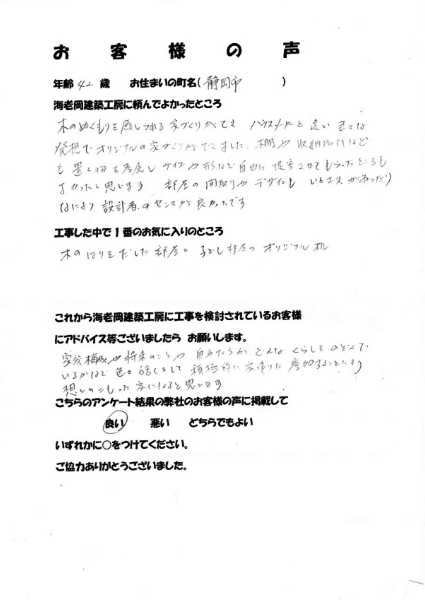 お客様の声
年齢 42 歳 お住まいの町名( 静岡市 )
海老岡建築工房に頼んでよかったところ
木のぬくもりを感じられる家づくりができ ハウスメーカーと違い 色々な
発想でオリジナルの家づくりができました。棚や収納
を置く 考慮し サイズや形など自由に
よかったと思います 部屋の間取りやデザインも
なにより設計者のセンスが良かったです
工事した中で1番のお気に入りのところ
木の 部屋と 子ども部屋のオリジナル机
これから海老岡建築工房に工事を検討されているお客様
にアドバイス等ございましたら お願いします。
家族構成や将来のことや 自分たちが どんなくらしをのぞんで
いるかなど 色々話しをして 積極的に家作りに参加することにより
想いのこもった家になると思います
こちらのアンケート結果の弊社のお客様の声に掲載して
良い 悪い どちらでもよい
いずれかに○をつけてください。
ご協力ありがとうございました。